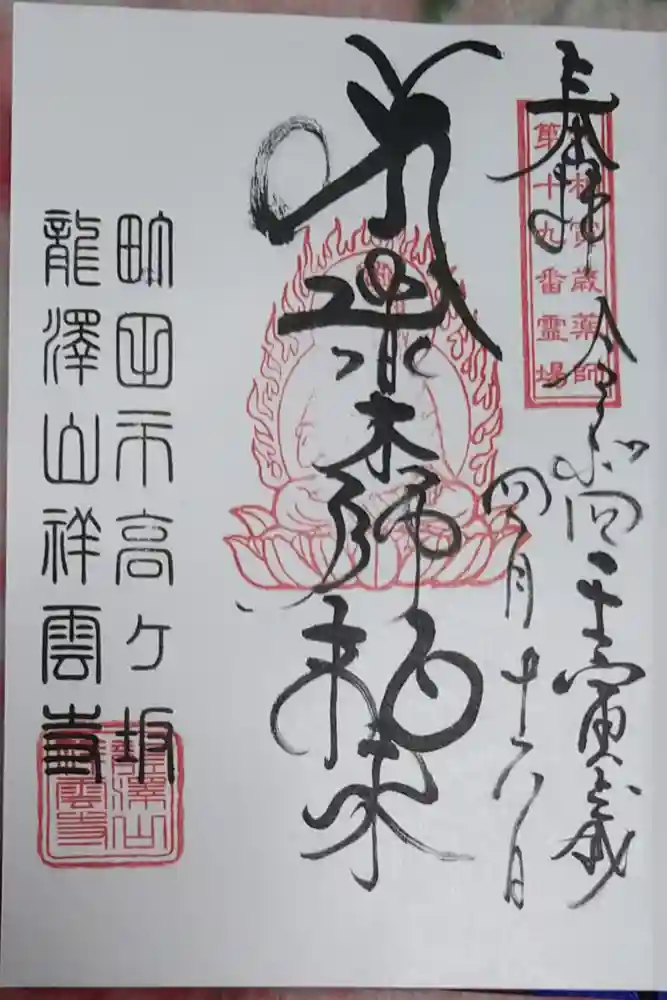 奉拝
相寅歳薬師
第十九番霊場
令和四壬寅歳
四月十六日
師
如来
町田市高ヶ坂
龍澤山祥雲寺
龍澤山
祥雲寺